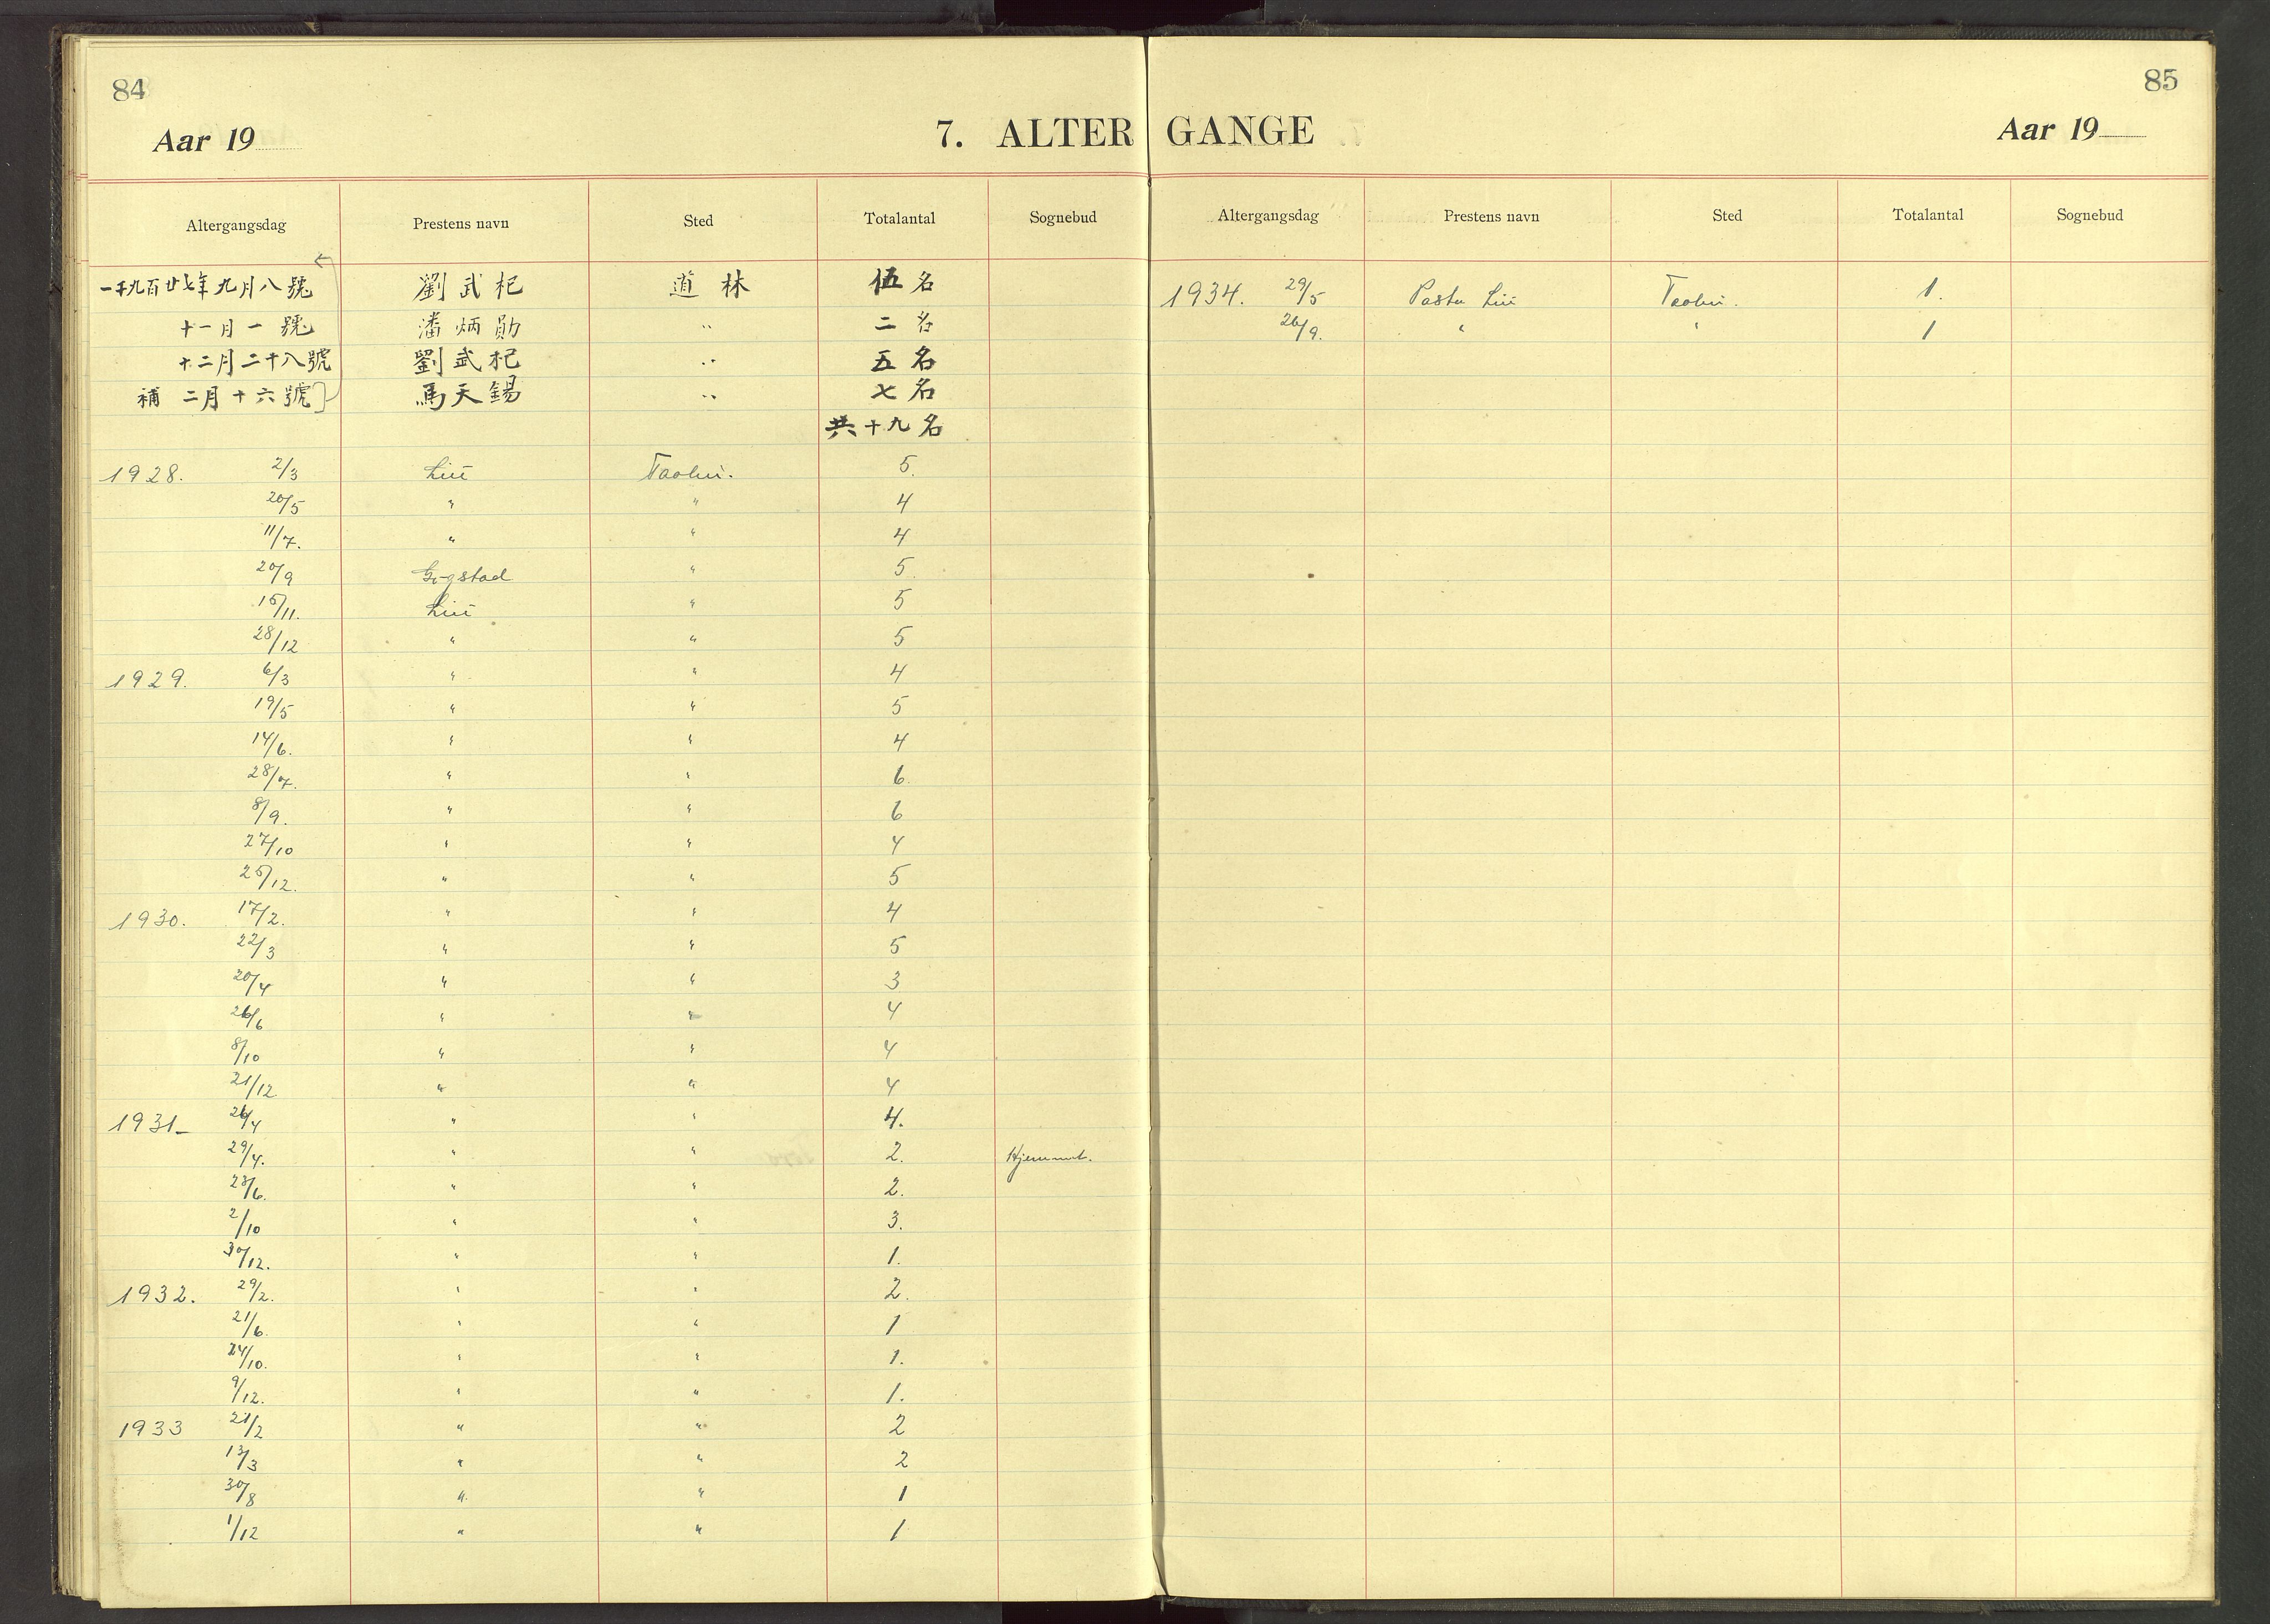 84
Aar 19
7. ALTER
Altergangsdag Prestens navn Sted Totalantal Sognebud
一千九百廿七年九月八號 劉武杞 道林 伍名
十一月一號 潘炳勛 " 二名
十二月二十八號 劉武杞 " 五名
補 二月十六號 馬天錫 " 七名
共十九名
1928. 2/3 Liu Taolin. 5.
20/5 " " 4
11/7. " " 4
20/9 Gogstad " 5.
15/11. Liu " 5
28/12 " " 5
1929. 6/3 " " 4
19/5 " " 5
14/6. " " 4
28/7. " " 6.
8/9. " " 6
27/10 " " 4
25/12. " " 5
1930. 17/2. " " 4
22/3 " " 5
20/4 " " 3
26/6 " " 4
8/10 " " 4
21/12 " " 4
1931_ 26/4 " " 4.
29/4. " " 2. Hjemmet.
28/6. " " 2.
2/10 " " 3.
30/12. " " 1.
1932. 29/2. " " 2.
21/6. " " 1
24/10. " " 1.
9/12. " " 1.
1933 21/2 " " 2
13/3 " " 2
30/8 " " 1
1/12 " " 1
85
GANGE
Aar 19
Altergangsdag Prestens navn Sted Totalantal Sognebud
1934. 29/5 Pastor Liu Taolin. 1.
26/9. " " 1